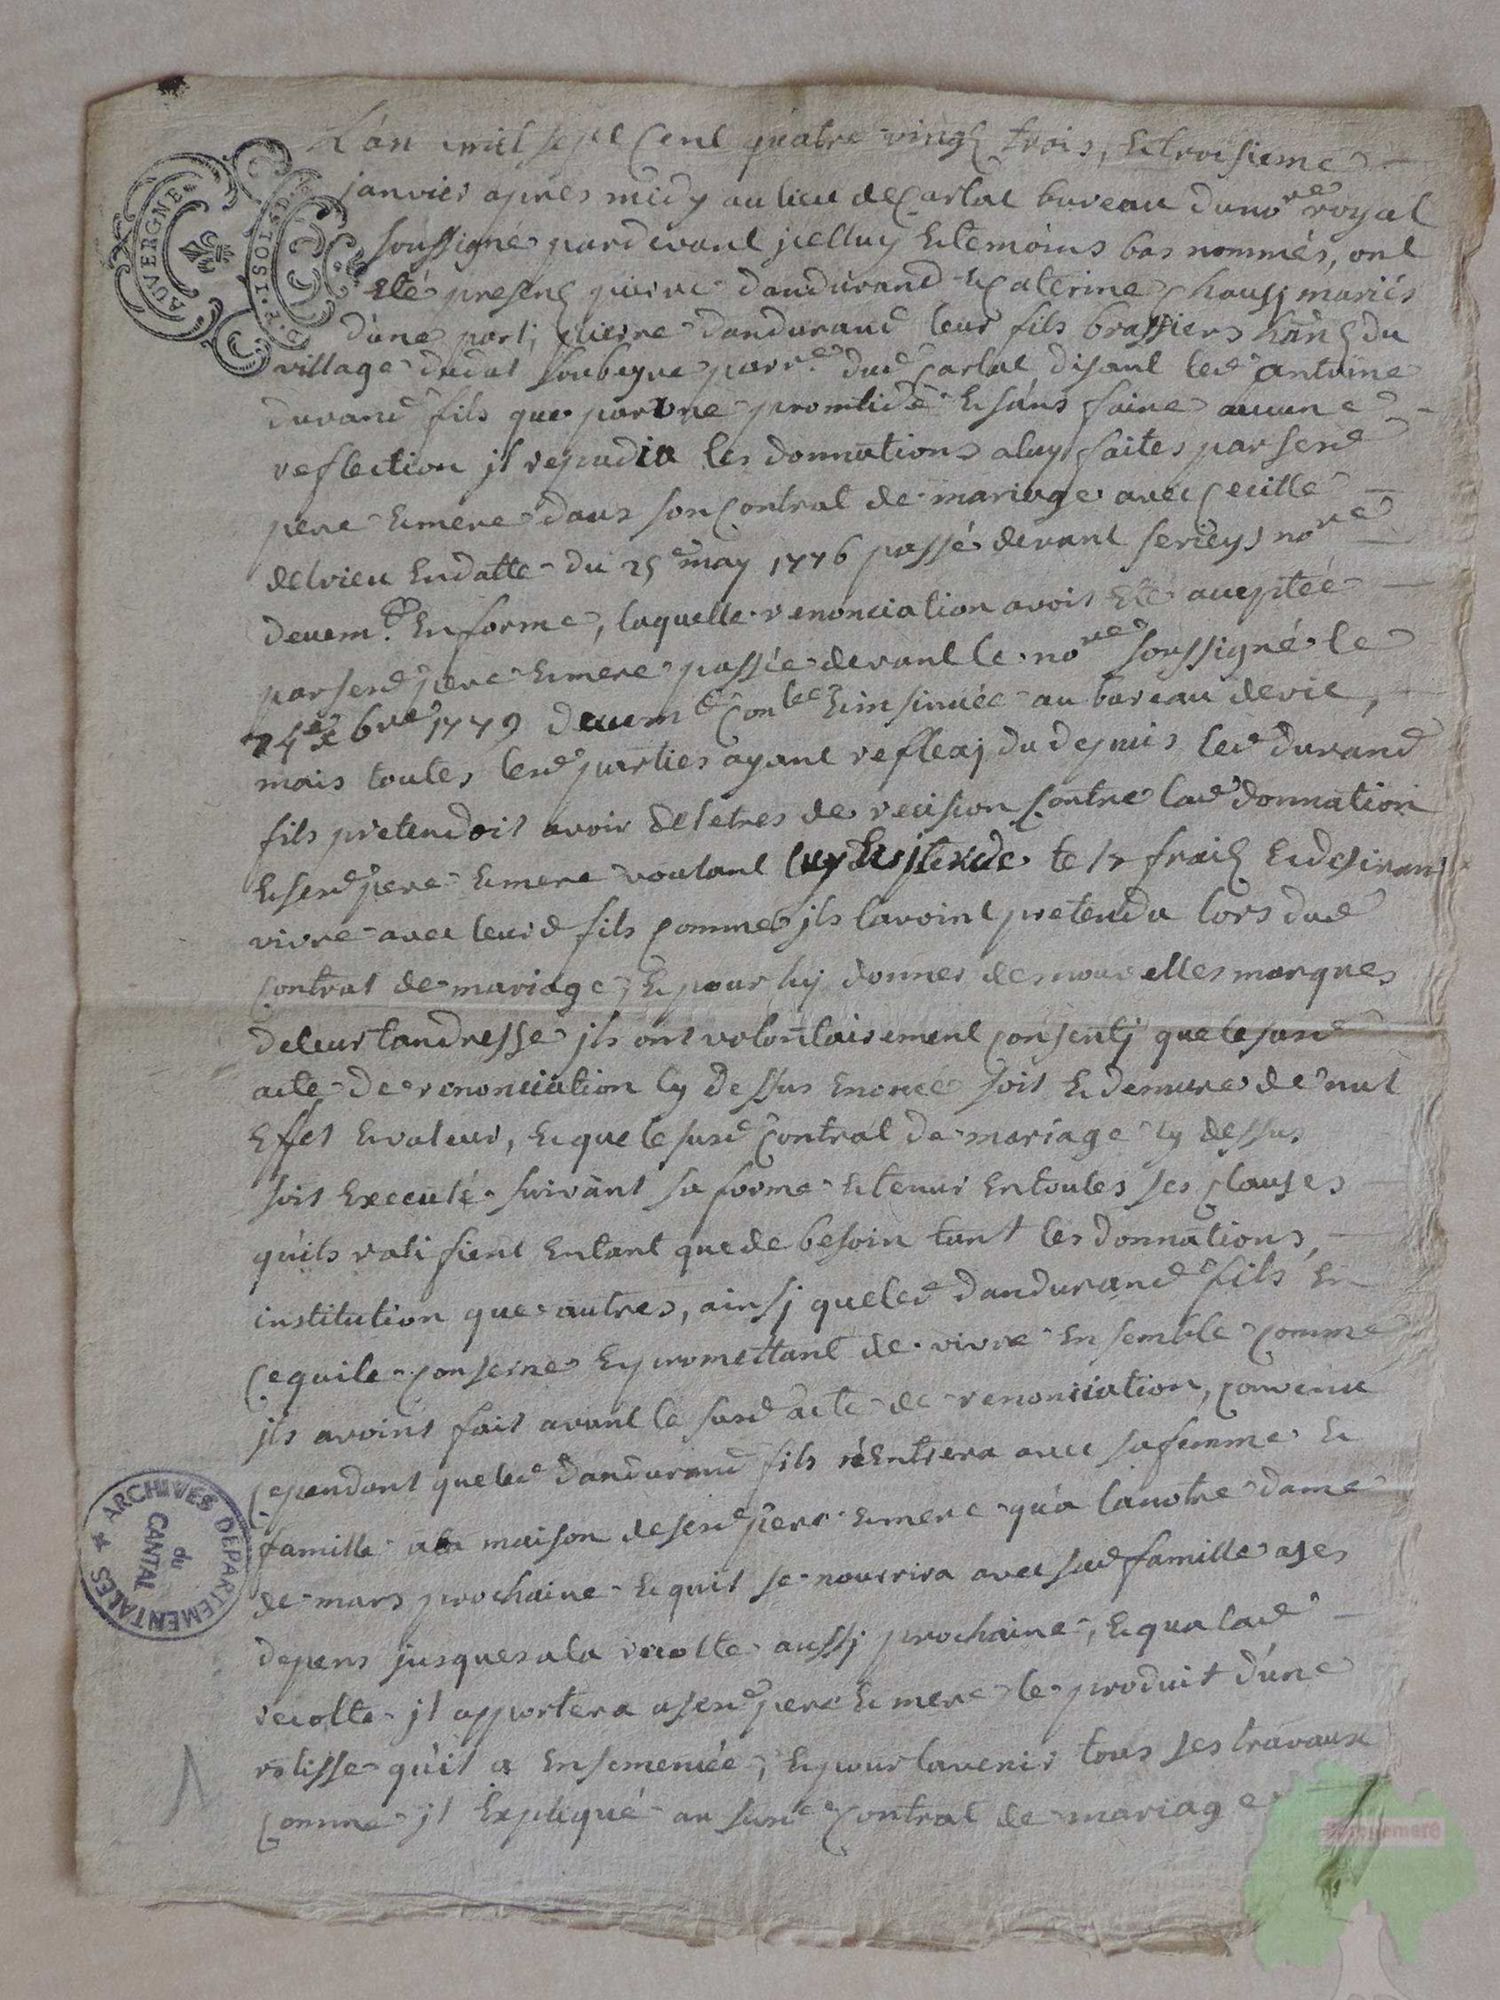 L'an mil sept cent quatre vingt trois, et troisieme
janvier apres midy au lieu de Carlat bureau du nore royal
soussigné pardevant jcelluy et temoins bas nommés, ont
eté presens pierre dandurand et Caterine mariés
d'une part, pierre dandurand leur fils brassiers hans du
village soubeyre parre dud Carlat disant led antoine
durand fils que par une promtide et sans faire aucune
reflection jl repudia les donnations a luy faites par sesd
pere et mere dans son Contrat de mariage avec Cecille
delrieu en datte du 25e may 1776 passé devant serieys nore
deuemt en forme, laquelle renonciation avoit eté aceptée
par sesd pere et mere passée devant le nore soussigné le
bre 1779 deuemt Conlée et insinuée au bureau de vic,
mais toutes lesd parties ayant reflexj du depuis led durand
fils pretendoit avoir de letres de recision Contre lad donnation
et sesd pere et mere voulant luy frais et desirant
vivre avec leurd fils Comme jls lavoint pretendu lors dud
Contrat de mariage, et pour luy donner de nouvelles marques
de leur tandresse jls ont volontairement Consentj que le susd
acte de renonciation cy dessus enoncé soit et demure de nul
effet et valeur, et que le susd Contrat de mariage cy dessus
soit executé suivant sa forme et tenur en toutes ses Clauses
quils ratifient en tant que de besoin tant les donnations,
institution que autres, ainsj que led dandurand fils en
Ce qui le Conserne et promettant de vivre ensemble Comme
jls avoint fait avant le susd acte de renonciation, Convenu
Cependant que led dandurand fils réentrera avec sa femme et
famille a la maison de sesd pere et mere qu'a la notre dame
de mars prochaine et quil se nourrira avec sad famille a ses
depens jusques a la recolte aussj prochaine, et qua lad
recolte jl apportera a sesd pere et mere le produit d'une
rotisse quil a ensemencée, et pour lavenir tous ses travaux
Comme jl expliqué au susd Contrat de mariage
AUVERGNE
G.P. ISOLS D.
ARCHIVES DEPARTEMENTALES
du
CANTAL